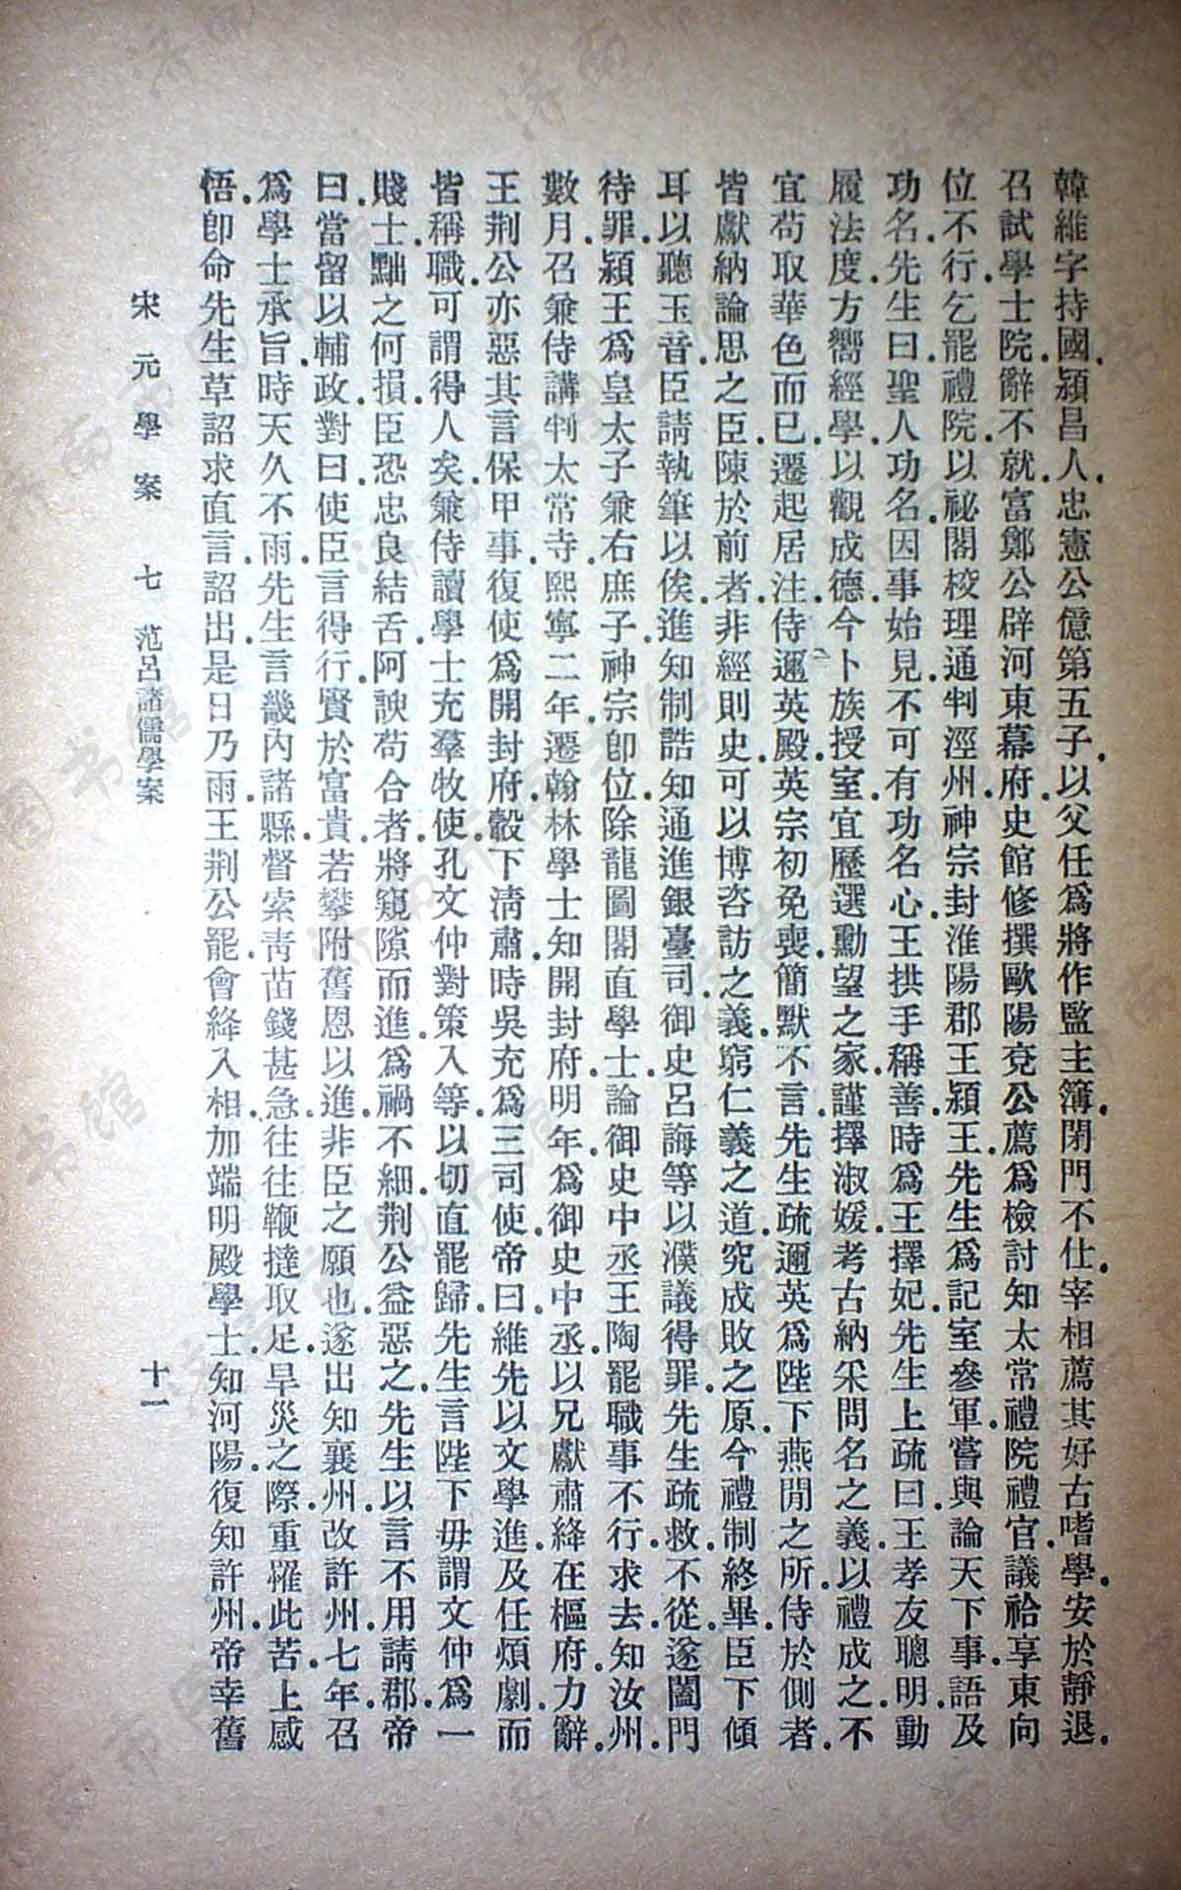 韓維字持國．潁昌人．忠憲公億第五子．以父任爲將作監主簿．閉門不仕．宰相薦其好古嗜學．安於靜退．
召試學士院．辭不就．富鄭公辟河東幕府．史館修撰歐陽兗公薦爲檢討知太常禮院．禮官議祫享東向
位．不行．乞罷禮院．以祕閣校理通判涇州．神宗封淮陽郡王潁王．先生爲記室參軍．嘗與論天下事．語及
功名．先生曰．聖人功名．因事始見．不可有功名心．王拱手稱善．時爲王擇妃．先生上疏曰．王孝友聰明．動
履法度．方嚮經學．以觀成德．今卜族授室．宜歷選勳望之家．謹擇淑媛．考古納采問名之義．以禮成之．不
宜苟取華色而已．遷起居注．侍邇英殿．英宗初免喪．簡默不言．先生疏邇英爲陛下燕閒之所．侍於側者．
皆獻納論思之臣．陳於前者．非經則史．可以博咨訪之義．窮仁義之道．究成敗之原．今禮制終畢．臣下傾
耳以聽玉音．臣請執筆以俟．進知制誥知通進銀臺司．御史呂誨等以濮議得罪．先生疏救．不從．遂闔門
待罪．潁王爲皇太子兼右庶子．神宗卽位．除龍圖閣直學士．論御史中丞王陶罷職事．不行．求去．知汝州．
數月．召兼侍講判太常寺．熙寧二年．遷翰林學士知開封府．明年．爲御史中丞．以兄獻肅絳在樞府．力辭．
王荆公亦惡其言保甲事．復使爲開封府．轂下淸肅．時吳充爲三司使．帝曰．維先以文學進．及任煩劇．而
皆稱職．可謂得人矣．兼侍讀學士充羣牧使．孔文仲對策入等．以切直罷歸．先生言陛下毋謂文仲爲一
賤士．黜之何損．臣恐忠良結舌．阿諛苟合者．將窺隙而進．爲禍不細．荆公益惡之．先生以言不用請郡．帝
曰．當留以輔政．對曰．使臣言得行．賢於富貴．若攀附舊恩以進．非臣之願也．遂出知襄州．改許州．七年．召
爲學士承旨．時天久不雨．先生言畿內諸縣．督索靑苗錢甚急．往往鞭撻取足．旱災之際．重罹此苦．上感
悟．卽命先生草詔求直言．詔出．是日乃雨．王荆公罷．會絳入相．加端明殿學士．知河陽．復知許州．帝幸舊
宋元學案　七　范呂諸儒學案　十一